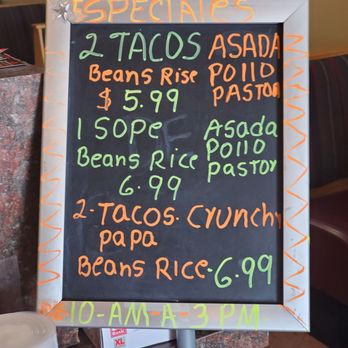 ESPECIALES
2 TACOS ASADA
Beans Rise POllO
$ 5.99 PASTOR
1 SOPe Asada
Beans Rice POllO
6.99 PastoY
2-TacOS. CYunchy
papa
Beans RIce-6.99
De 10-AM-A-3 PM
XL